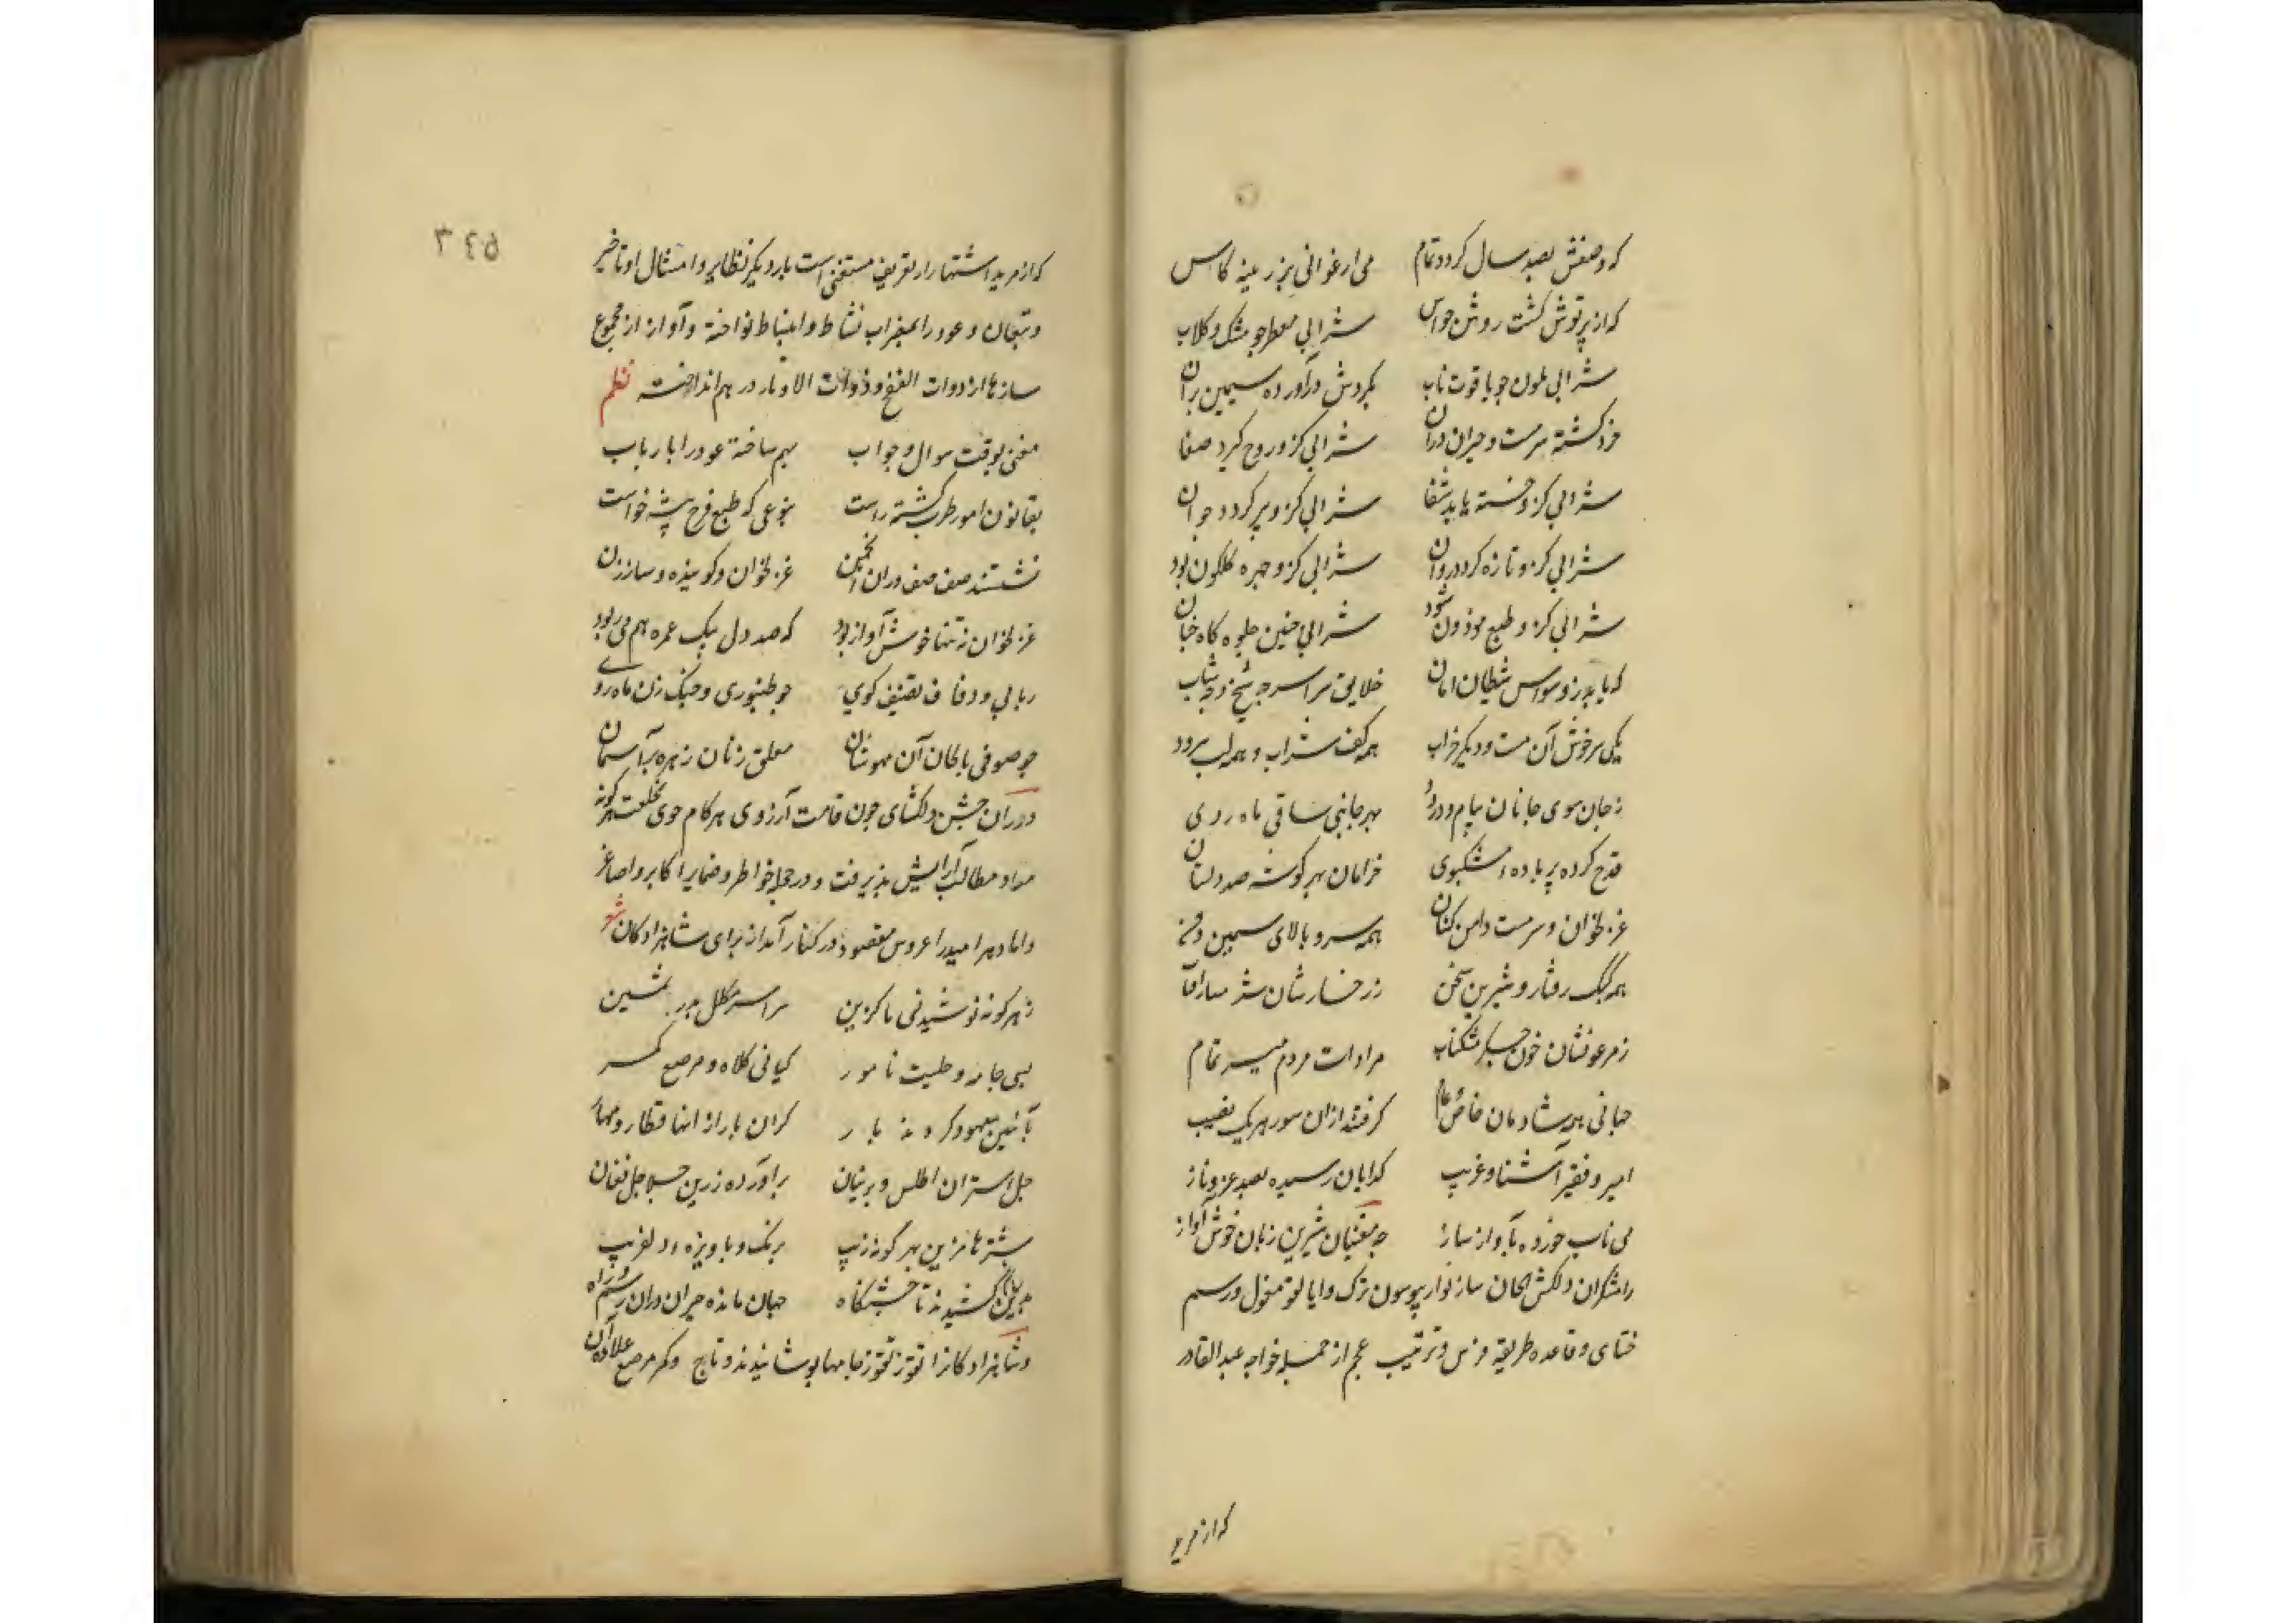 که وصفش بصد سال کردد تمام می ارغوانی بزرینه کاس
که از پرتوش کشت روشن حواس شرابی معطر چو مشک و کلاب
شرابی ملون چو یاقوت ناب بکردش درآورده سیمین بران
خرد کشته سرمست و حیران دران شرابی کزو روح کیرد صفا
شرابی کزو خسته یابد شفا شرابی کزو پیر کردد جوان
شرابی کزو تازه کردد روان شرابی کزو چهره کلکون بود
شرابی کزو طبع موزون شود شرابی چنین جلوه کاه جنان
که یابد ز وسواس شیطان امان خلایق سراسر چه شیخ و چه شاب
یکی سرخوش آن مست و دیکر خراب همه کف شراب و همه لب سرود
ز جان سوی جانان پیام و درود بهر جانبی ساقی ماه روی
قدح کرده پر باده مشکبوی خرامان بهر کوشه صد دلستان
غزلخوان و سرمست دامن کشان همه سرو بالای سیمین ذقن
همه کبک رفتار و شیرین سخن ز رخسارشان
خون جکر مشکناب مرادات مردم میسر تمام
جهانی همه شادمان خاص و عام کرفتند ازان سور هر یک نصیب
امیر و فقیر آشنا و غریب کدایان رسیده بصد عز و ناز
می ناب خورده بآواز ساز چه مغنیان شیرین زبان خوش آواز
رامشکران دلکش الحان ساز نواز ترک و مغول و رسم
ختای و قاعده طریقه فرس و ترتیب عجم از جمله خواجه عبدالقادر
که از مزید
٣٤٥
که از مزید اشتهار از تعریف مستغنی است با دیکر نظایر و امثال او تاخیر
و عود را بمضراب نشاط و انبساط نواخته و آواز از مجموع
سازها از ذوات النفخ و ذوات الاوتار در هم انداخته نظم
مغنی بوقت سوال و جواب بهم ساخته عود را با رباب
بقانون امور طرب کشته راست بنوعی که طبع فرح پیشه خواست
نشستند صف صف دران انجمن غزلخوان و کوینده و ساززن
غزلخوان نه تنها خوش آواز بود که صد دل بیک غمزه هم می ربود
ربابی و دفاف تصنیف کوی چو طنبوری و چنک زن ماه روی
چو صوفی بالحان آن مهوشان معلق زنان زهره بر آسمان
دران جشن دلکشای چون قامت آرزوی هر کام جوی بخلعت هر کونه
مراد و مطالب آرایش پذیرفت و در جمله خواطر و ضمایر اکابر و اصاغر
داماد هر امید را عروس مقصود در کنار آمد از برای شاهزادکان شعر
ز هر کونه پوشیدنی نا کزین سراسر مکلل بدر ثمین
بسی جامه و نامور کیانی کلاه و مرصع کمر
بآئین معهود کردند بار کران بار از انها قطار و مهار
جل استران اطلس و پرنیان برآورده زرین جلاجل فغان
شترها مزین بهر کونه زیب برنک و دلفریب
بدین سان کشیدند تا جشنکاه جهان مانده حیران دران رسم و راه
و شاهزادکانرا تقوز تقوز جامها پوشانیدند و تاج و کمر مرصع علاوه آن